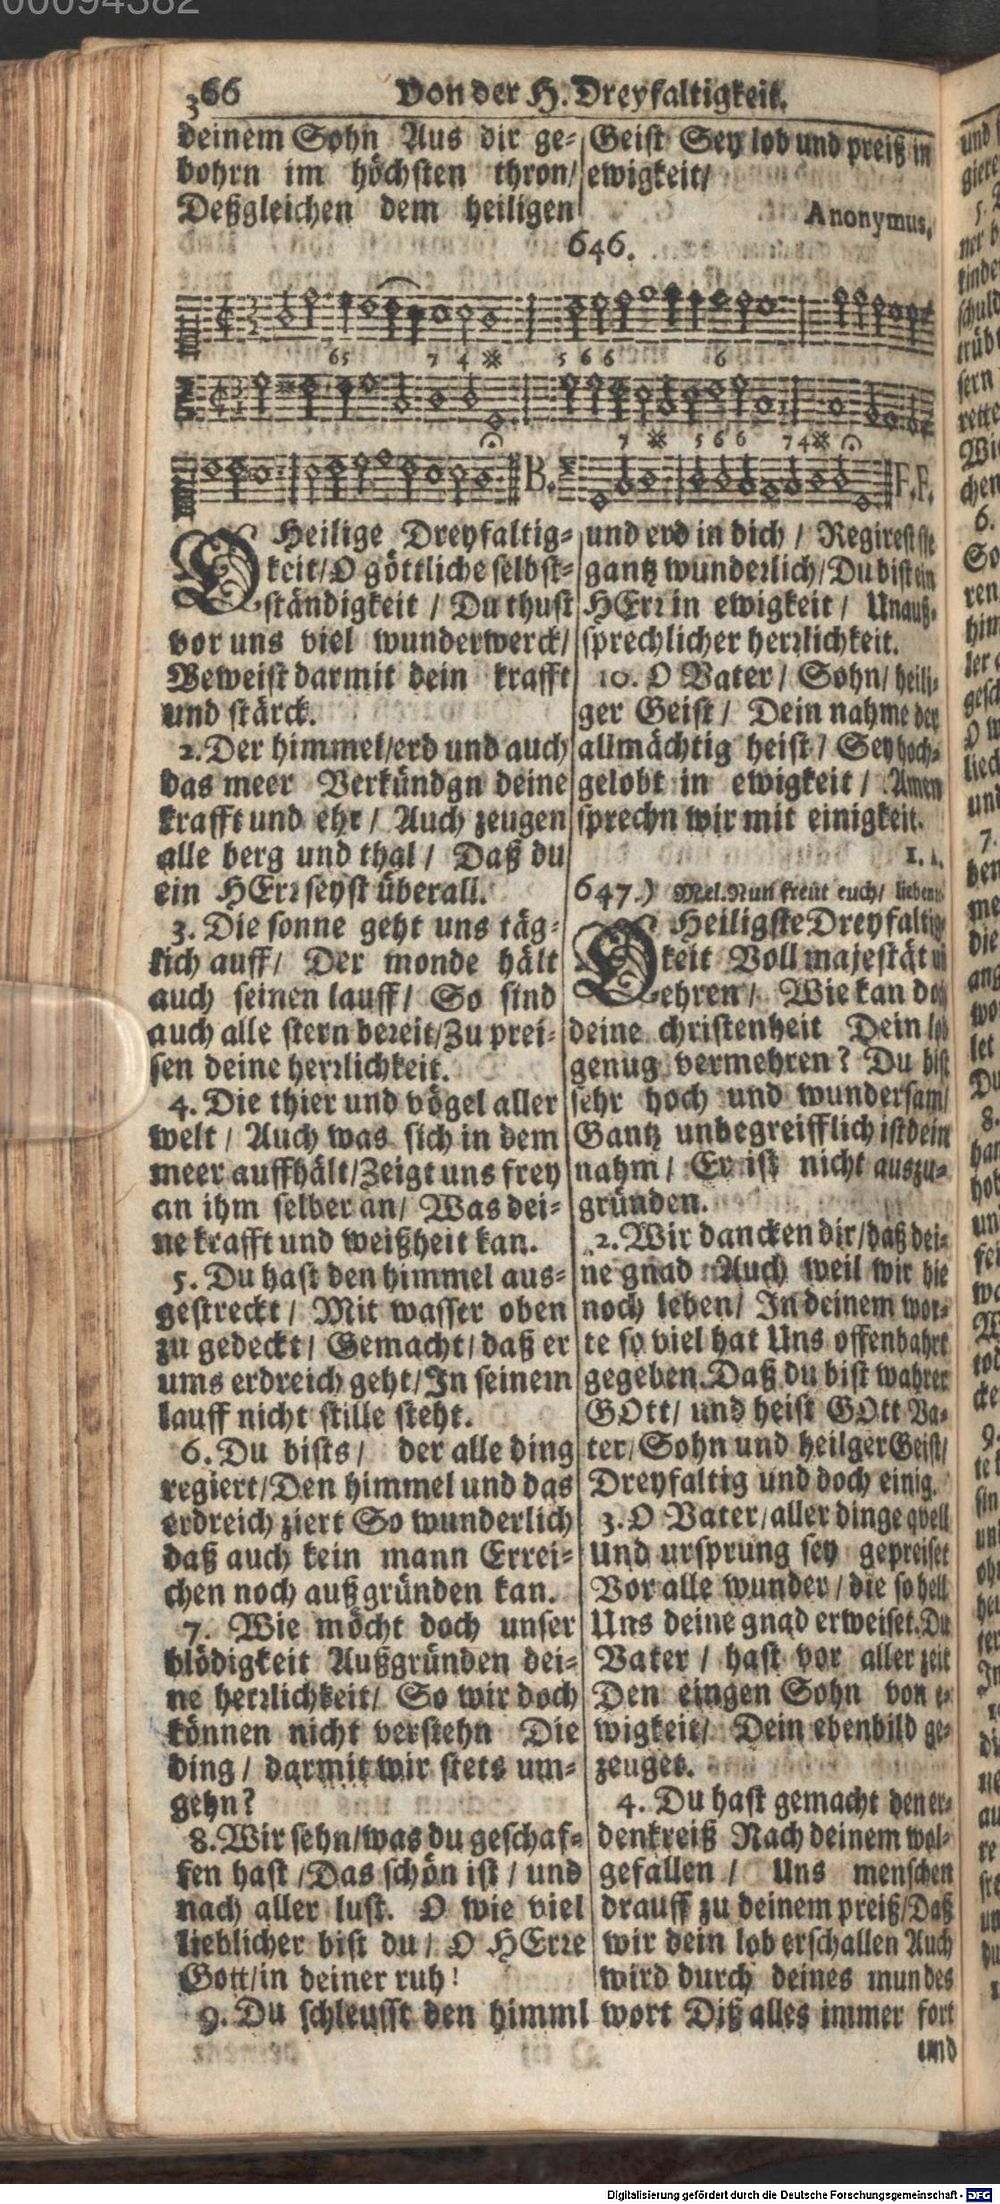 00094382
366 Von der H. Dreyfaltigkeit.
deinem Sohn Aus dir ge-
bohrn im höchsten thron/
Deßgleichen dem heiligen
Geist Sey lob und preiß in
ewigkeit/
Anonymus.
646.
65 7 4 5 6 6 6
7 5 6 6 7 4
B. F.F.
O Heilige Dreyfaltig-
keit/O göttliche selbst-
ständigkeit / Du thust
vor uns viel wunderwerck/
Beweist darmit dein krafft
und stärck.
2. Der himmel/erd und auch
das meer Verkündgn deine
krafft und ehr / Auch zeugen
alle berg und thal / Daß du
ein HErr seyst überall.
3. Die sonne geht uns täg-
lich auff/ Der monde hält
auch seinen lauff/ So sind
auch alle stern bereit/Zu prei-
sen deine herrlichkeit.
4. Die thier und vögel aller
welt / Auch was sich in dem
meer auffhält/Zeigt uns frey
an ihm selber an/ Was dei-
ne krafft und weißheit kan.
5. Du hast den himmel aus-
gestreckt / Mit wasser oben
zu gedeckt/ Gemacht/daß er
ums erdreich geht/In seinem
lauff nicht stille steht.
6. Du bists / der alle ding
regiert/Den himmel und das
erdreich ziert So wunderlich
daß auch kein mann Errei-
chen noch außgründen kan.
7. Wie möcht doch unser
blödigkeit Außgründen dei-
ne herrlichkeit/ So wir doch
können nicht verstehn Die
ding / darmit wir stets um-
gehn?
8. Wir sehn/was du geschaf-
fen hast /Das schön ist / und
nach aller lust. O wie viel
lieblicher bist du / O HErre
Gott/in deiner ruh!
9. Du schleusst den himml
und erd in dich / Regirest sie
gantz wunderlich/Du bist ein
HErr in ewigkeit / Unauß-
sprechlicher herrlichkeit.
10. O Vater / Sohn/ heili-
ger Geist / Dein nahme der
allmächtig heist / Sey hoch-
gelobt in ewigkeit / Amen
sprechn wir mit einigkeit.
647.) Mel. Nun freut euch/ lieben
O Heiligste Dreyfaltig-
keit Voll majestät
ehren / Wie kan doch
deine christenheit Dein lob
genug vermehren? Du bist
sehr hoch und wundersam/
Gantz unbegreifflich ist dein
nahm / Er ist nicht auszu-
gründen.
2. Wir dancken dir/daß dei-
ne gnad Auch weil wir hie
noch leben/ In deinem wor-
te so viel hat Uns offenbahrt
gegeben. Daß du bist wahrer
GOtt/ und heist GOtt Va-
ter/Sohn und heilger Geist/
Dreyfaltig und doch einig.
3. O Vater/aller dinge qvell
Und ursprung sey gepreiset
Vor alle wunder / die so hell
Uns deine gnad erweiset. Du
Vater / hast vor aller zeit
Den eingen Sohn von e-
wigkeit/ Dein ebenbild ge-
zeuget.
4. Du hast gemacht den er-
denkreiß Nach deinem wol-
gefallen / Uns menschen
drauff zu deinem preiß/Daß
wir dein lob erschallen Auch
wird durch deines mundes
wort Diß alles immer fort
und
Digitalisierung gefördert durch die Deutsche Forschungsgemeinschaft - DFG